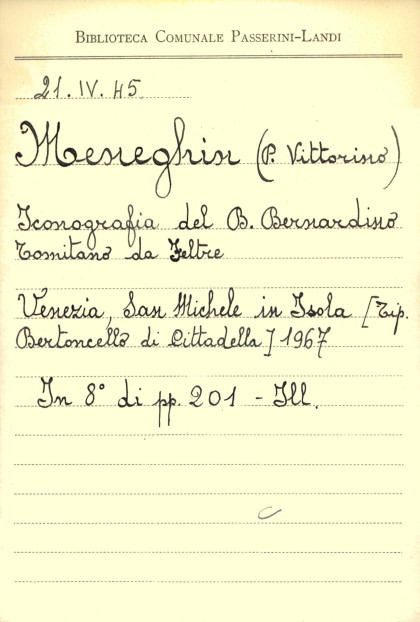 BIBLIOTECA COMUNALE PASSERINI-LANDI
21. IV. 45.
Meneghin (P. Vittorino)
Iconografia del B. Bernardino
Tomitano da Feltre
Venezia, San Michele in Isola [Tip.
Bertoncello di Cittadella] 1967
In 8° di pp. 201 - Ill.